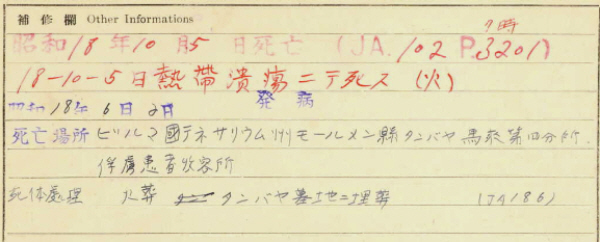 補修欄 Other Informations
9時
昭和18年10月5日死亡 (JA.102 P.3201)
18-10-5日熱帯潰瘍ニテ死ス (火)
昭和18年6日2日 発病
死亡場所 ビルマ國テネサリウム州モールメン縣タンバヤ馬来第四分所
俘虜患者收容所
死体處理 火葬 タンバヤ墓地ニ埋葬 (JA186)